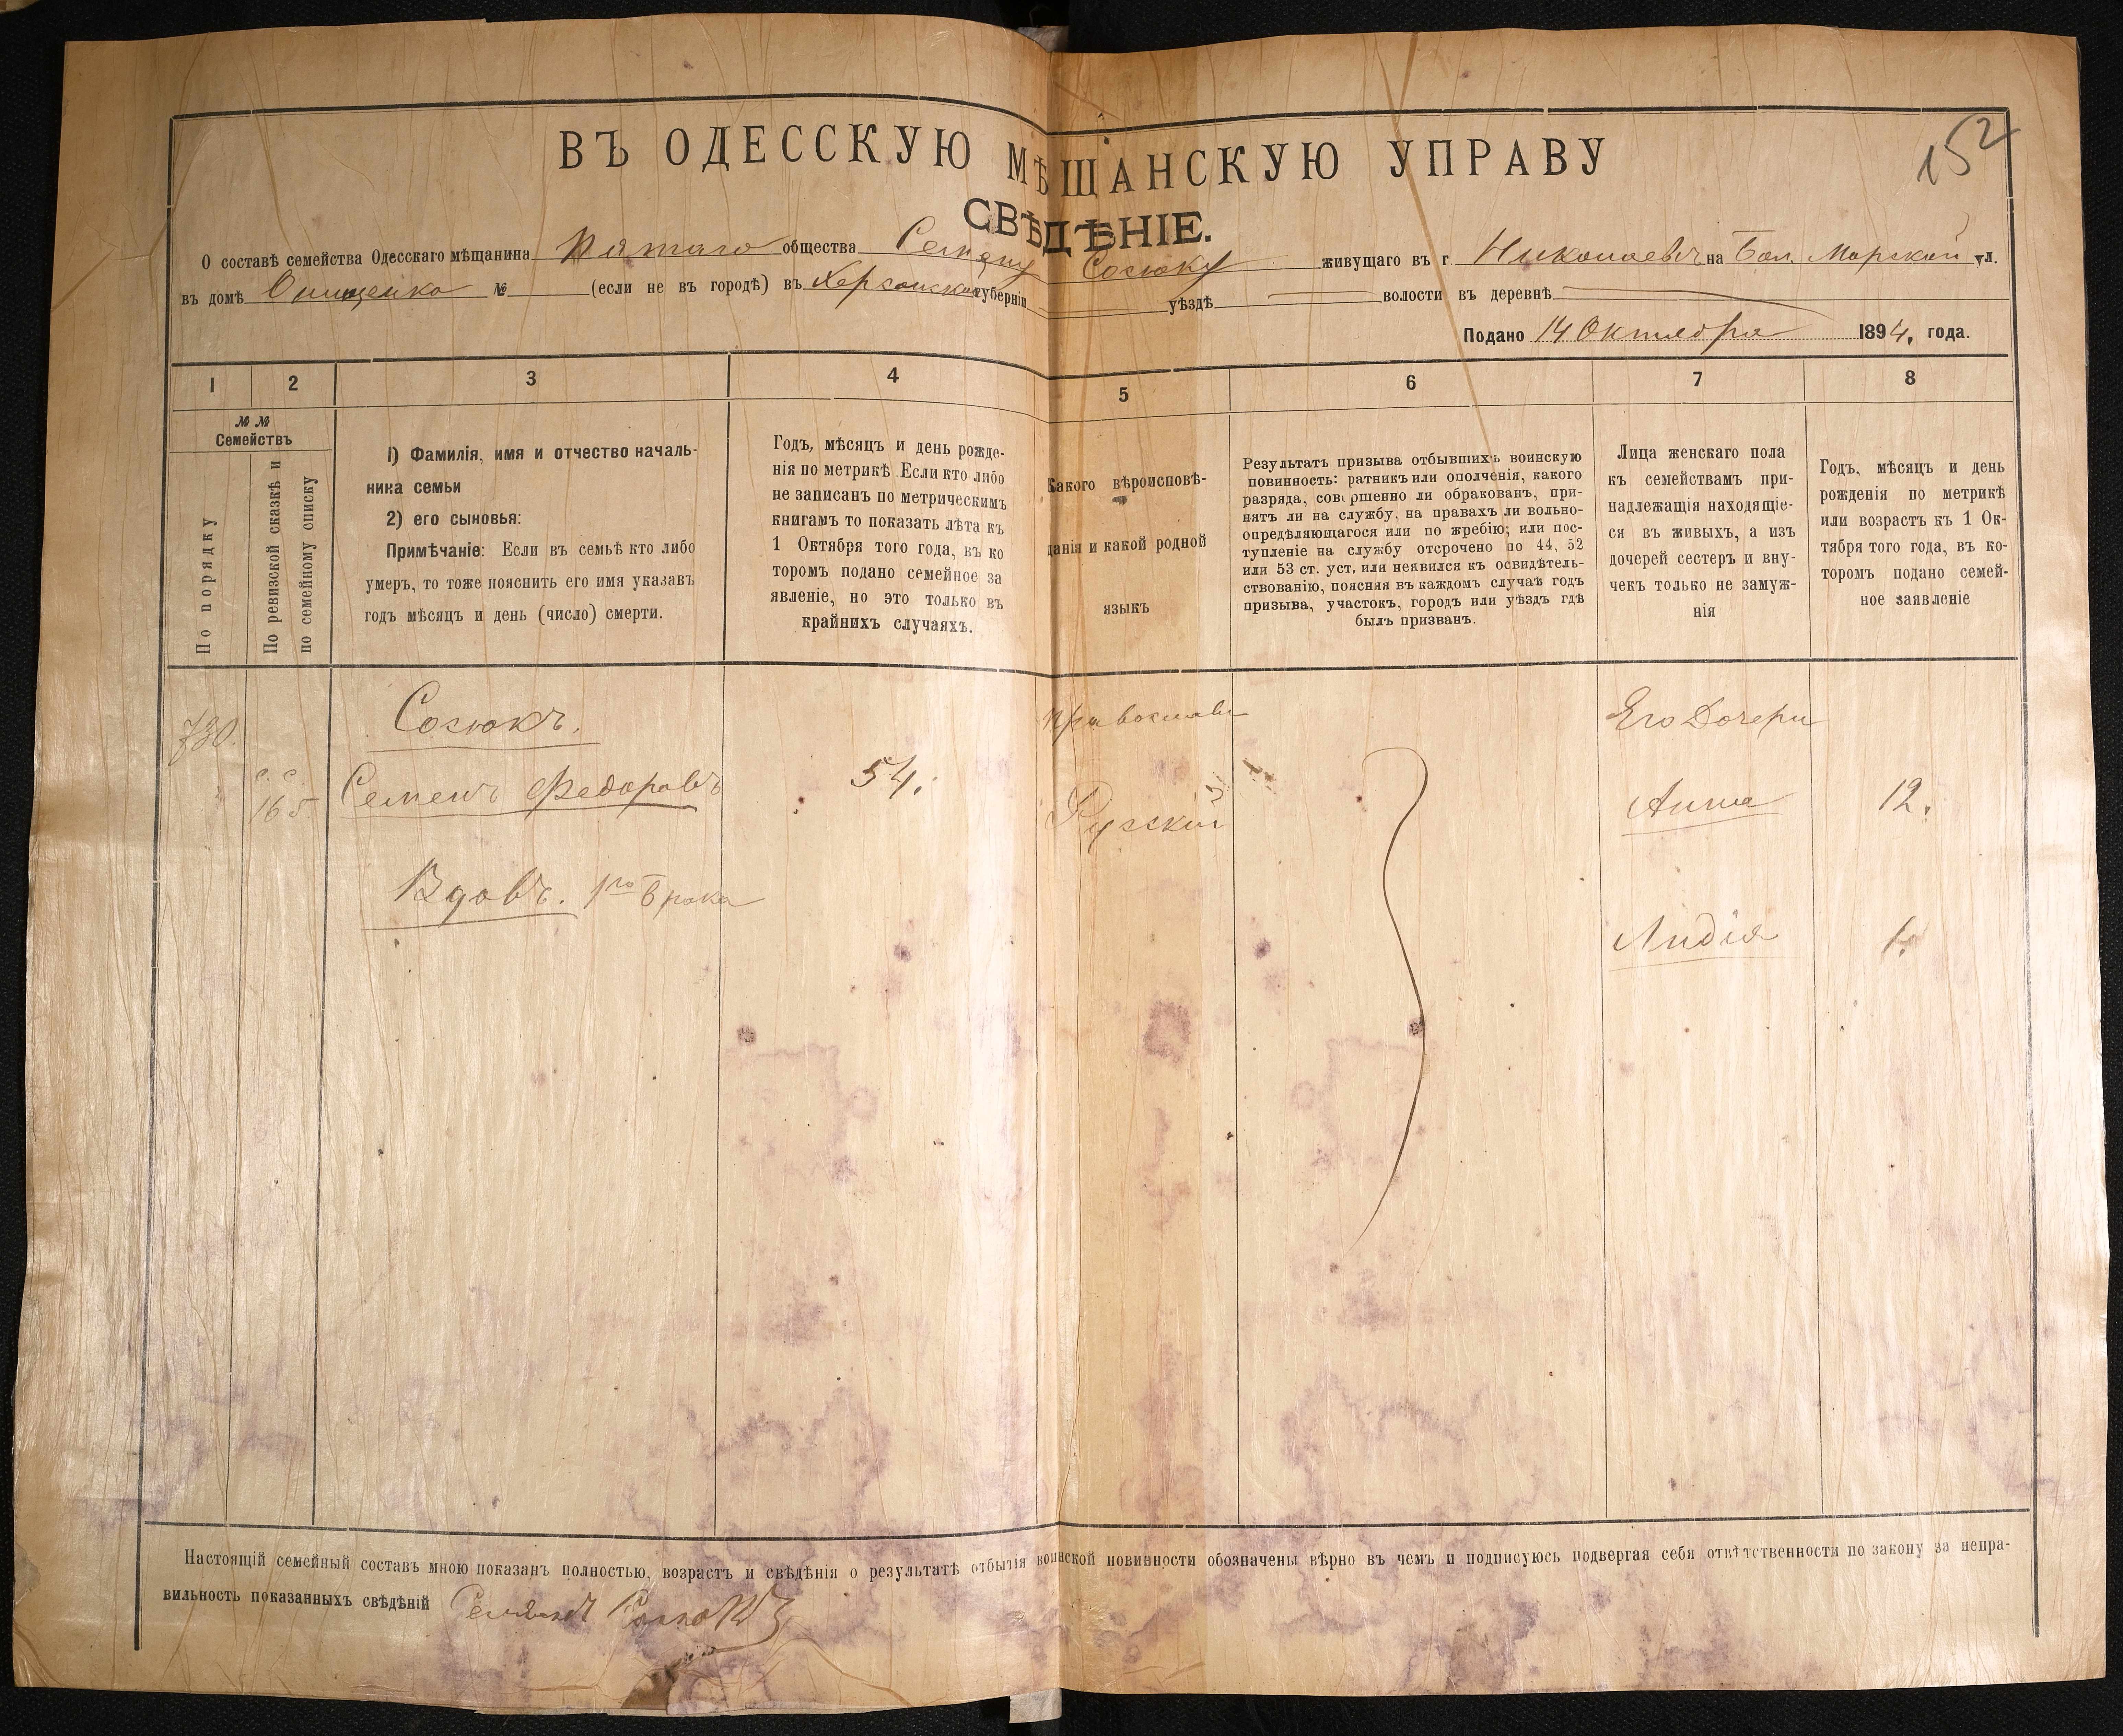 152
ВЪ ОДЕССКУЮ МѢЩАНСКУЮ УПРАВУ
СВѢДѢНІЕ.
О составѣ семейства Одесскаго мѣщанина Пятаго общества Семену Созюку живущаго въ г. Николаевъ на Бол. Морской ул.
въ домѣ Онищенко № (если не въ городѣ) въ Херсонской губерніи уѣздѣ волости въ деревнѣ
Подано 14 Октября 1894, года.
1 2 3 4 5 6 7 8
№ №
Семействъ
По порядку
По ревизской сказкѣ и
по семейному списку
1) Фамилія, имя и отчество началь-
ника семьи
2) его сыновья:
Примѣчаніе: Если въ семьѣ кто либо
умеръ, то тоже пояснить его имя указавъ
годъ мѣсяцъ и день (число) смерти.
Годъ, мѣсяцъ и день рожде-
нія по метрикѣ. Если кто либо
не записанъ по метрическимъ
книгамъ то показать лѣта къ
1 Октября того года, въ ко
торомъ подано семейное за
явленіе, но это только въ
крайнихъ случаяхъ.
Какого вѣроисповѣ-
данія и какой родной
языкъ
Результатъ призыва отбывшихъ воинскую
повинность: ратникъ или ополченія, какого
разряда, совершенно ли обракованъ, при-
нятъ ли на службу, на правахъ ли вольно-
опредѣляющагося или по жребію; или пос-
тупленіе на службу отсрочено по 44, 52
или 53 ст. уст. или неявился къ освидѣтель-
ствованію, поясняя въ каждомъ случаѣ годъ
призыва, участокъ, городъ или уѣздъ гдѣ
былъ призванъ.
Лица женскаго пола
къ семействамъ при-
надлежащія находящіе-
ся въ живыхъ, а изъ
дочерей сестеръ и вну-
чекъ только не замуж-
нія
Годъ, мѣсяцъ и день
рожденія по метрикѣ
или возрастъ къ 1 Ок-
тября того года, въ ко-
торомъ подано семей-
ное заявленіе
730.
с. с.
165
Созюкъ.
Семенъ Федоровъ
Вдовъ. 1го брака
54.
Православн
Русскій
Его Дочери
Анна 12.
Лидія 1.
Настоящій семейный составъ мною показанъ полностью, возрастъ и свѣдѣнія о результатѣ отбытія воинской повинности обозначены вѣрно въ чемъ и подписуюсь подвергая себя отвѣтственности по закону за непра-
вильность показанныхъ свѣдѣній